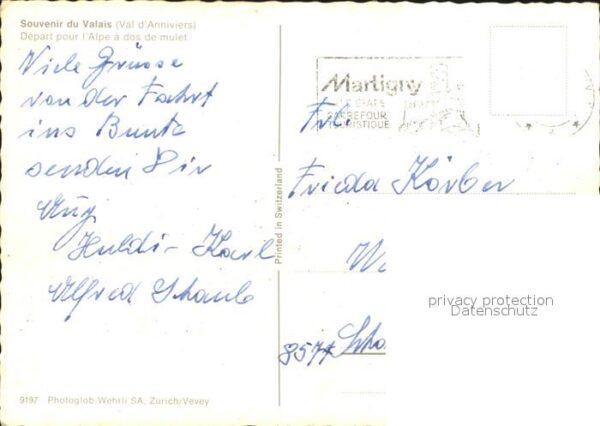 Souvenir du Valais (Val d'Anniviers)
Départ pour l'Alpe à dos de mulet
Viele Grüsse
von der Fahrt
ins Bunte
senden Dir
Huldi - Karl
Alfred Schaub
Martigny
CARREFOUR
TOURISTIQUE
Frl.
Frieda Körber
8574
privacy protection
Datenschutz
Printed in Switzerland
9197 Photoglob-Wehrli SA, Zurich/Vevey